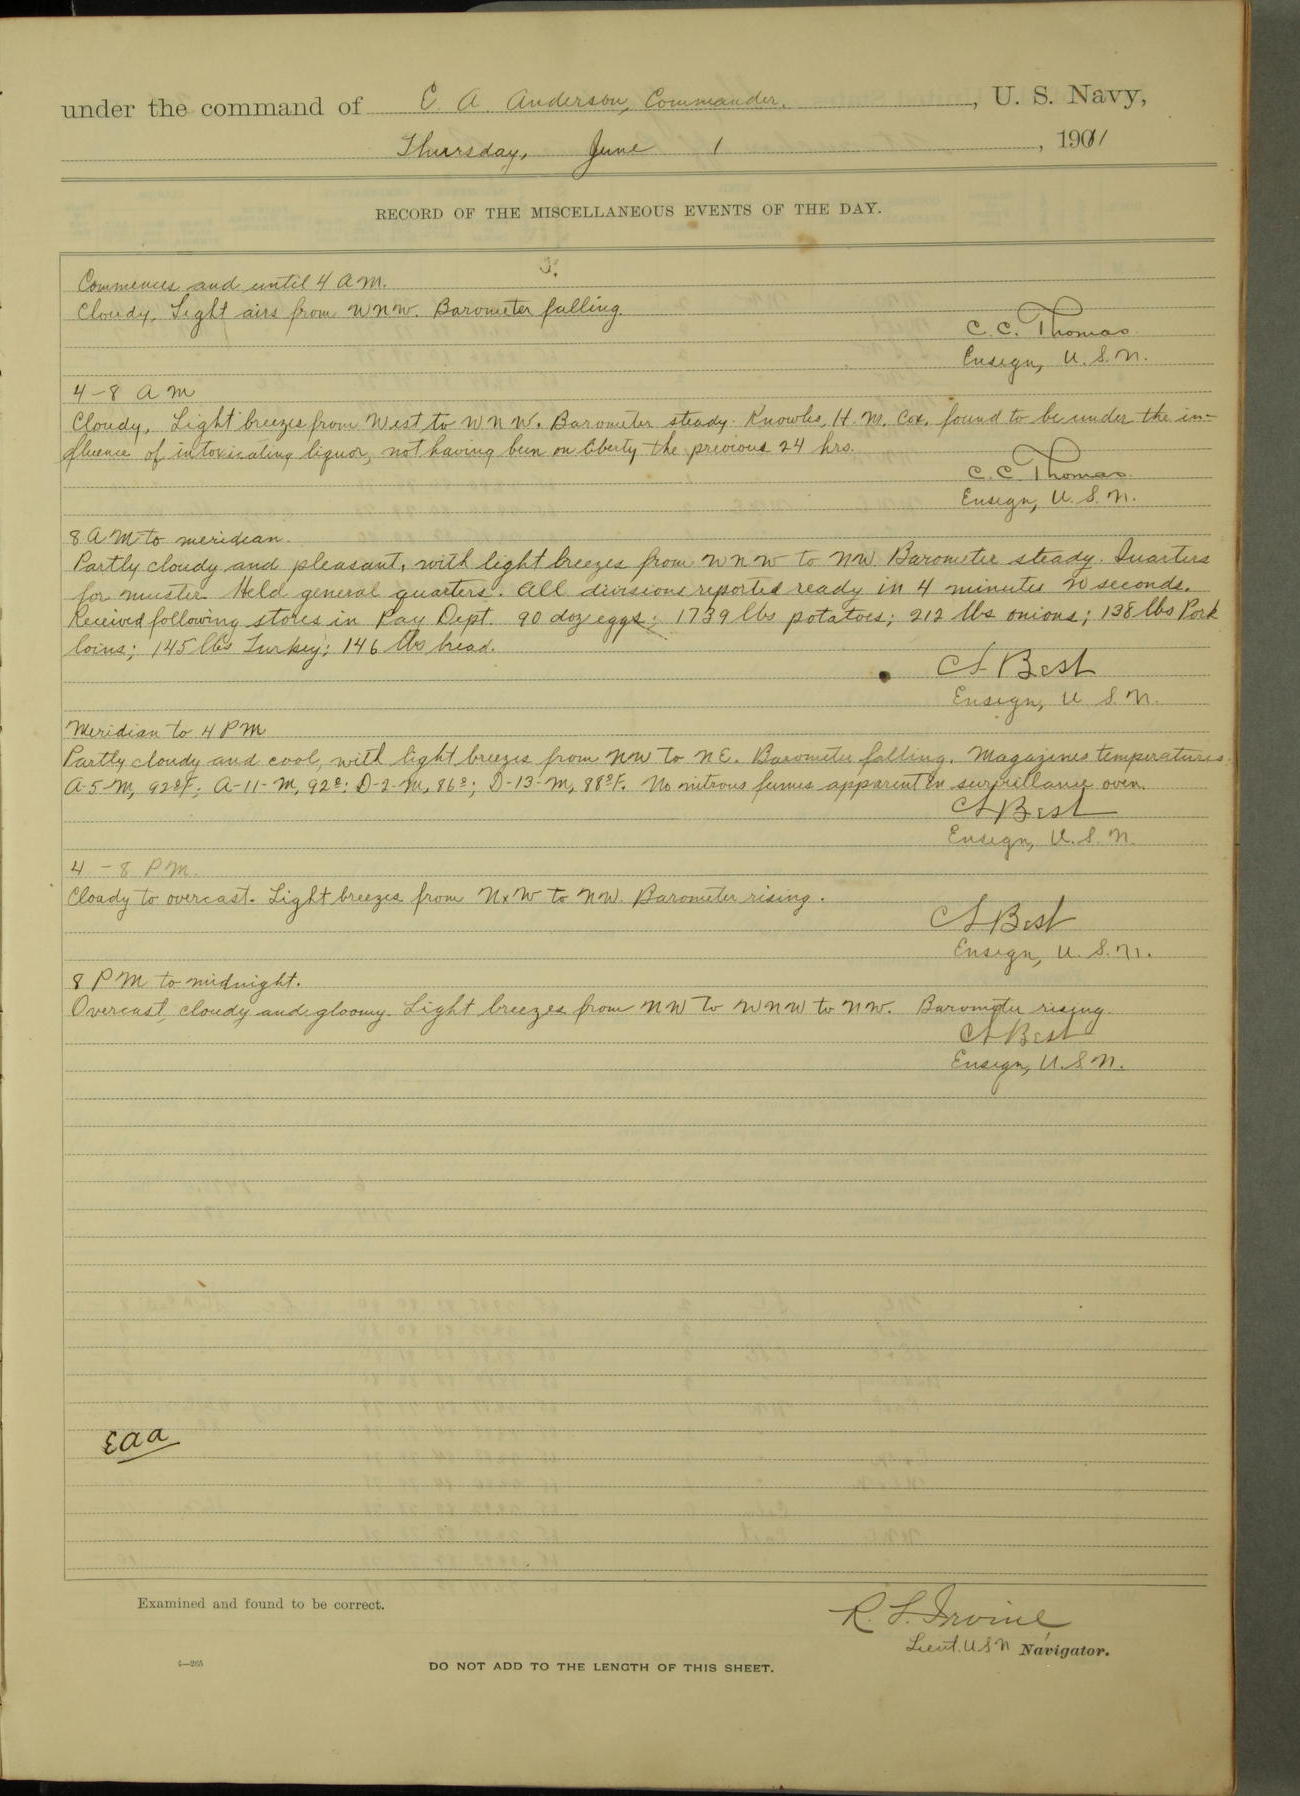 under the command of C A Anderson, Commander, , U. S. Navy,
Thursday, June 1 , 1911
RECORD OF THE MISCELLANEOUS EVENTS OF THE DAY.
Commences and until 4 A M.
Cloudy. Light airs from WNW. Barometer falling.
C. C. Thomas
Ensign, U. S. N.
4-8 A M
Cloudy. Light breezes from West to WNW. Barometer steady. Knowles, H. M. Cox. found to be under the in-
fluence of intoxicating liquor, not having been on liberty the previous 24 hrs.
C. C. Thomas
Ensign, U. S. N.
8 A M to meridian.
Partly cloudy and pleasant, with light breezes from WNW to NW. Barometer steady. Quarters
for muster. Held general quarters. All divisions reported ready in 4 minutes seconds.
Received following stores in Pay Dept. 90 doz eggs; 1739 lbs potatoes; 212 lbs onions; 138 lbs Pork
loins; 145 lbs Turkey; 146 lbs bread.
Best
Ensign, U S. N.
Meridian to 4 P M
Partly cloudy and cool, with light breezes from NW to NE. Barometer falling. Magazines temperatures.
A-5-M, 92°F; A-11-M, 92°; D-2-M, 86°; D-13-M, 88°F. No nitrous fumes apparent in surveillance oven.
Best
Ensign, U. S. N.
4 - 8 P M.
Cloudy to overcast. Light breezes from NxW to NW. Barometer rising.
Best
Ensign, U. S. N.
8 P M to midnight.
Overcast, cloudy and gloomy. Light breezes from NW to WNW to NW. Barometer rising.
Best
Ensign, U. S. N.
EAA
Examined and found to be correct.
R. L. Irvine
Lieut. USN Navigator.
6—265
DO NOT ADD TO THE LENGTH OF THIS SHEET.